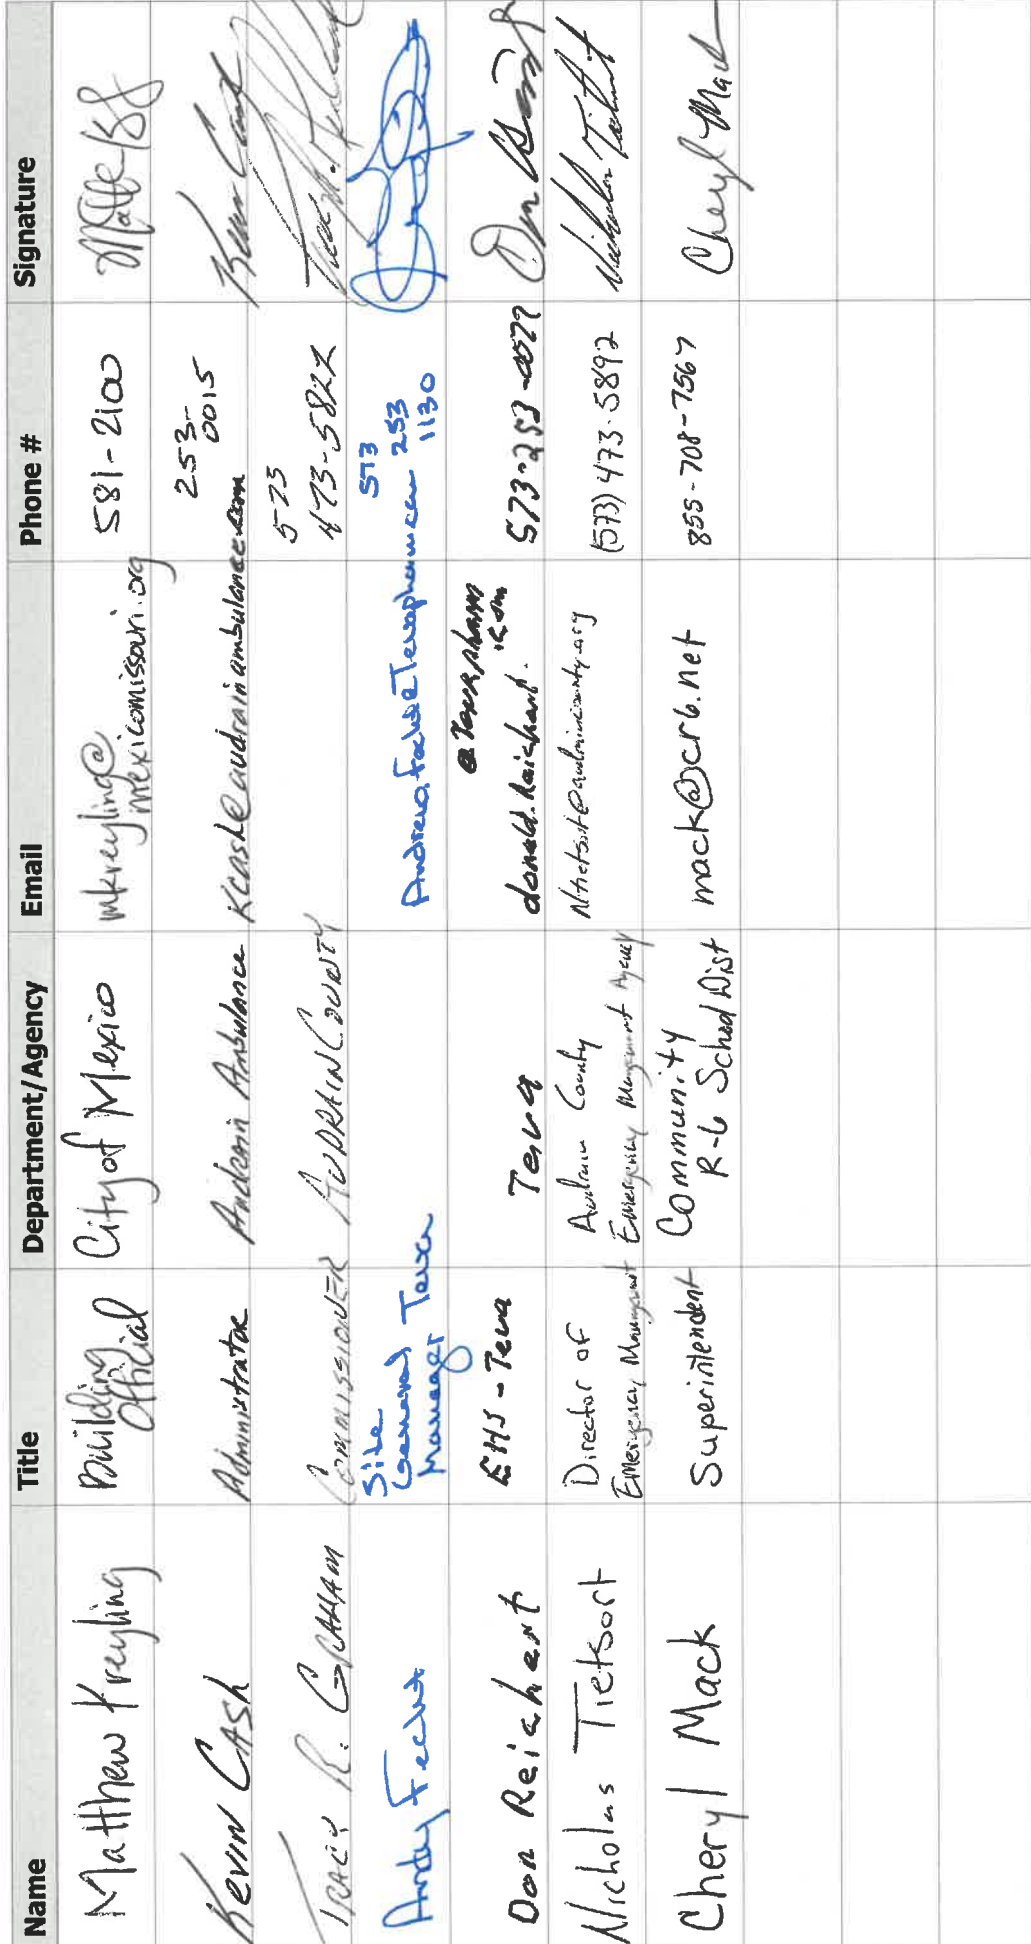 Name Title Department/Agency Email Phone # Signature
Matthew Kreyling Building Official City of Mexico mkreyling@ mexicomissouri.org 581-2100
Kevin Cash Administrator Audrain Ambulance kcash@audrainambulance.com 253-0015 Kevin Cash
Tracy R. Graham Commissioner Audrain County 573 473-5822
Andy Fecht Site General Manager Teva 573 253 1130
Don Reichert EHS - Teva Teva 573-253-0079
Nicholas Tietsort Director of Emergency Management Audrain County Emergency Management Agency (573) 473-5892 Nicholas Tietsort
Cheryl Mack Superintendent Community R-6 School Dist mack@cr6.net 855-708-7567 Cheryl Mack